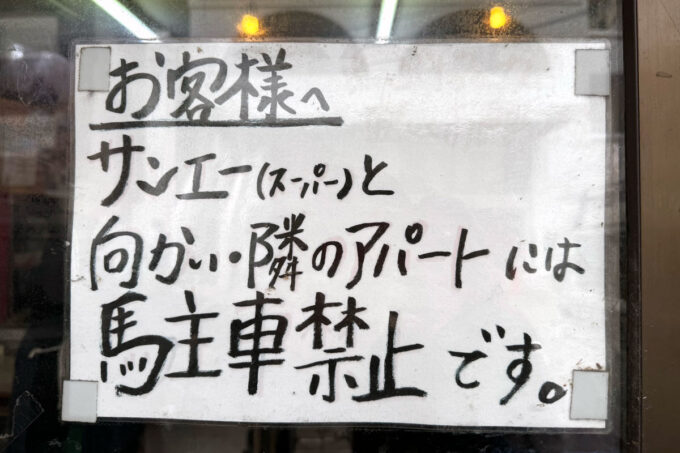 お客様へ
サンエー(スーパー)と
向かい・隣のアパートには
駐車禁止です。